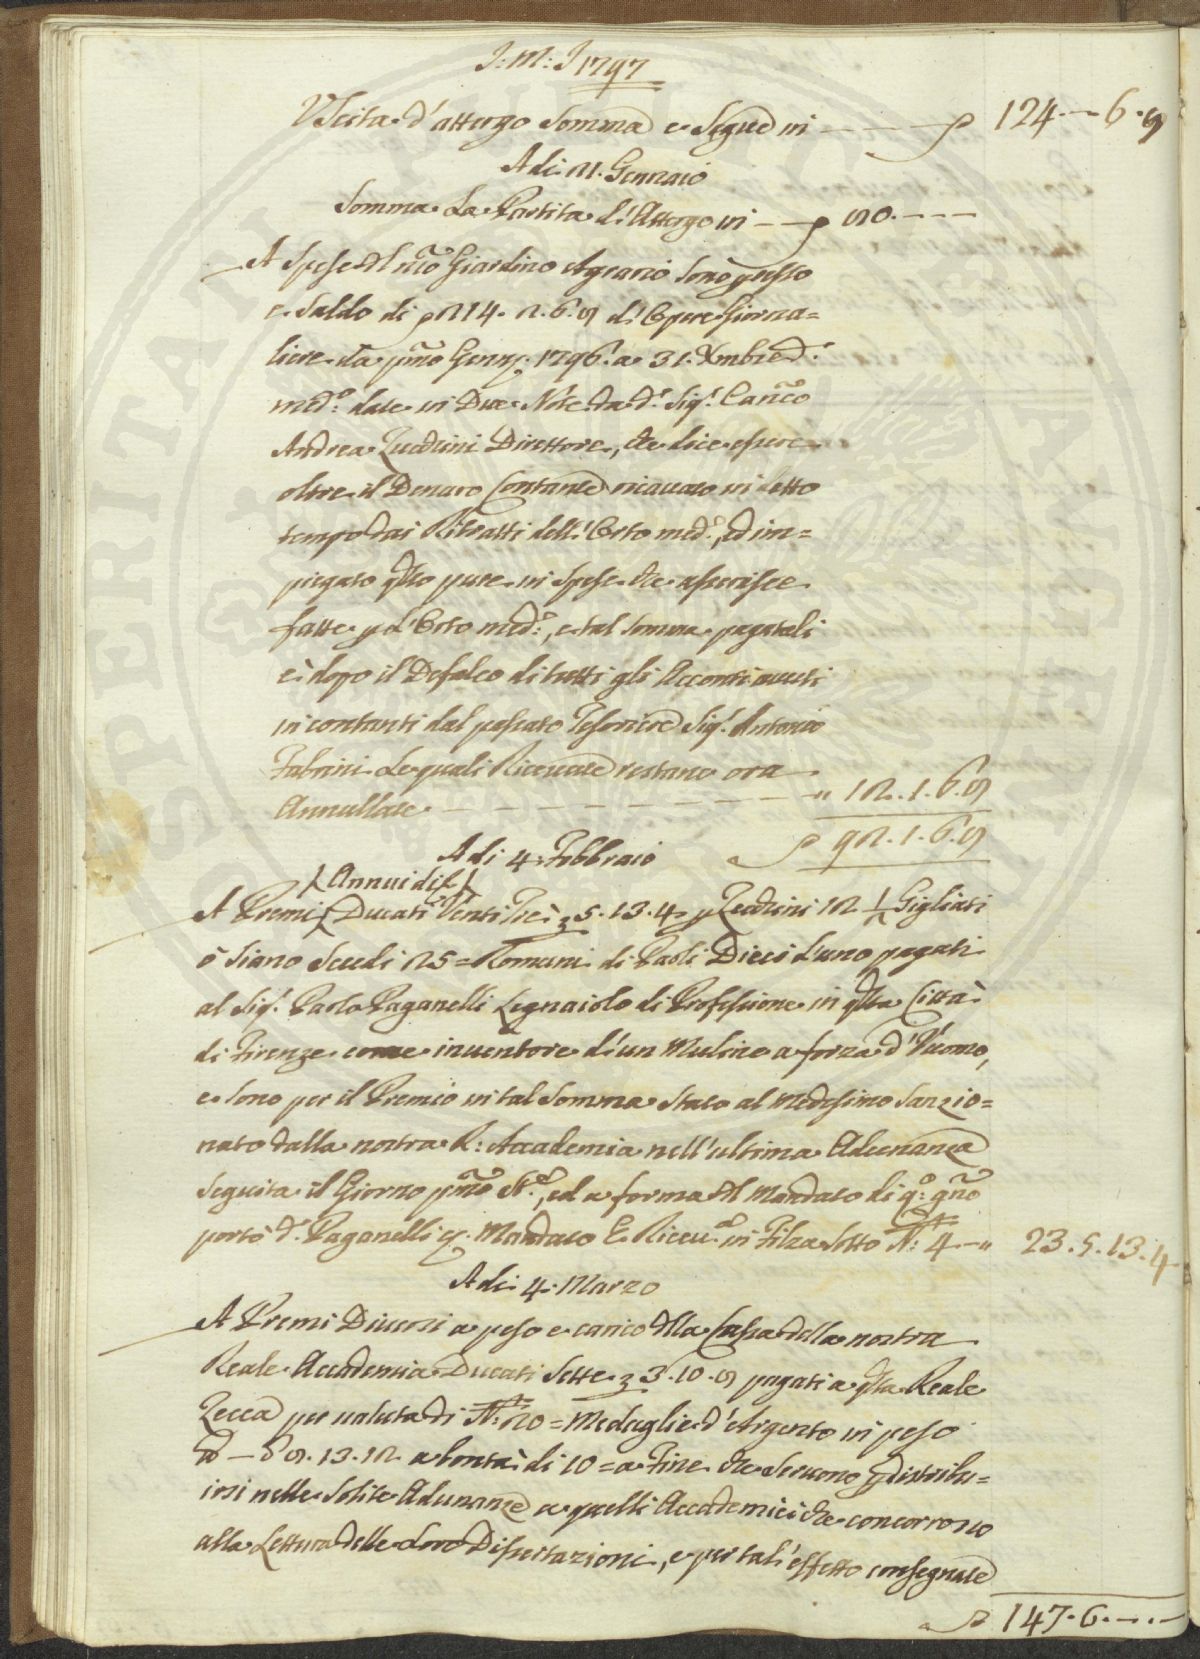 J: M: J 1797
Uscita d'attergo Somma e Segue in — 124.—6.9
Adi 21. Gennaio
Somma La Partita d'Attergo in — 80.—
A Spese del nro Giardino Agrario Sono
e Saldo di 214. 2. 6. 8 d'Opere Giorna=
liere da pmo Genn: 1796. a 31. Xmbre d:
med:o date in Due Note da d:o Sig:r Canco
Andrea Zucchini Direttore, che dice essere
oltre il Denaro Contante ricavato in detto
tempo dai Ritratti dell'Orto med:o, ed im=
piegato qsto pure in Spese che asserisce
fatte p L'Orto med:o, e tal Somma pagatali
è dopo il Defalco di tutti gli Acconti avuti
in contanti dal passato Tesoriere Sig:r Antonio
Fabrini Le quali Ricevute restano ora
Annullate — — — " 12. 1. 6. 8
92. 1. 6. 8
Adi 4. Febbraio
Annui di
A Premi Ducati Venti Tre 5. 13. 4 p Zecchini 12 ½ Gigliati
ò Siano Scudi 25 = Romani di Paoli Dieci l'uno pagati
al Sig:r Paolo Paganelli Legnaiolo di Professione in qsta Città
di Firenze come inventore d'un Mulino a forza d'Uomo,
e Sono per il Premio in tal Somma Stato al Medesimo Sanzio=
nato dalla nostra R: Accademia nell'ultima Adunanza
Seguita il Giorno pmo St:o, ed a forma del Mandato di q:o gno
portò d:o Paganelli p. Mandato E Ricev:a in Filza Sotto N: 4 — " 23. 5. 13. 4
Adi 4. Marzo
A Premi Diversi a peso e carico della Cassa della nostra
Reale Accademia Ducati Sette 3. 10. 8 pagati a qsta Reale
Zecca per valuta di N: 20 = Medaglie d'Argento in peso
— 8. 13. 12 a bontà di 10 = a Fine che Servono p distribu=
irsi nelle Solite Adunanze a quelli Accademici che concorrono
alla Lettura delle Loro Dissertazioni, e per tal'effetto consegnate
147. 6. —